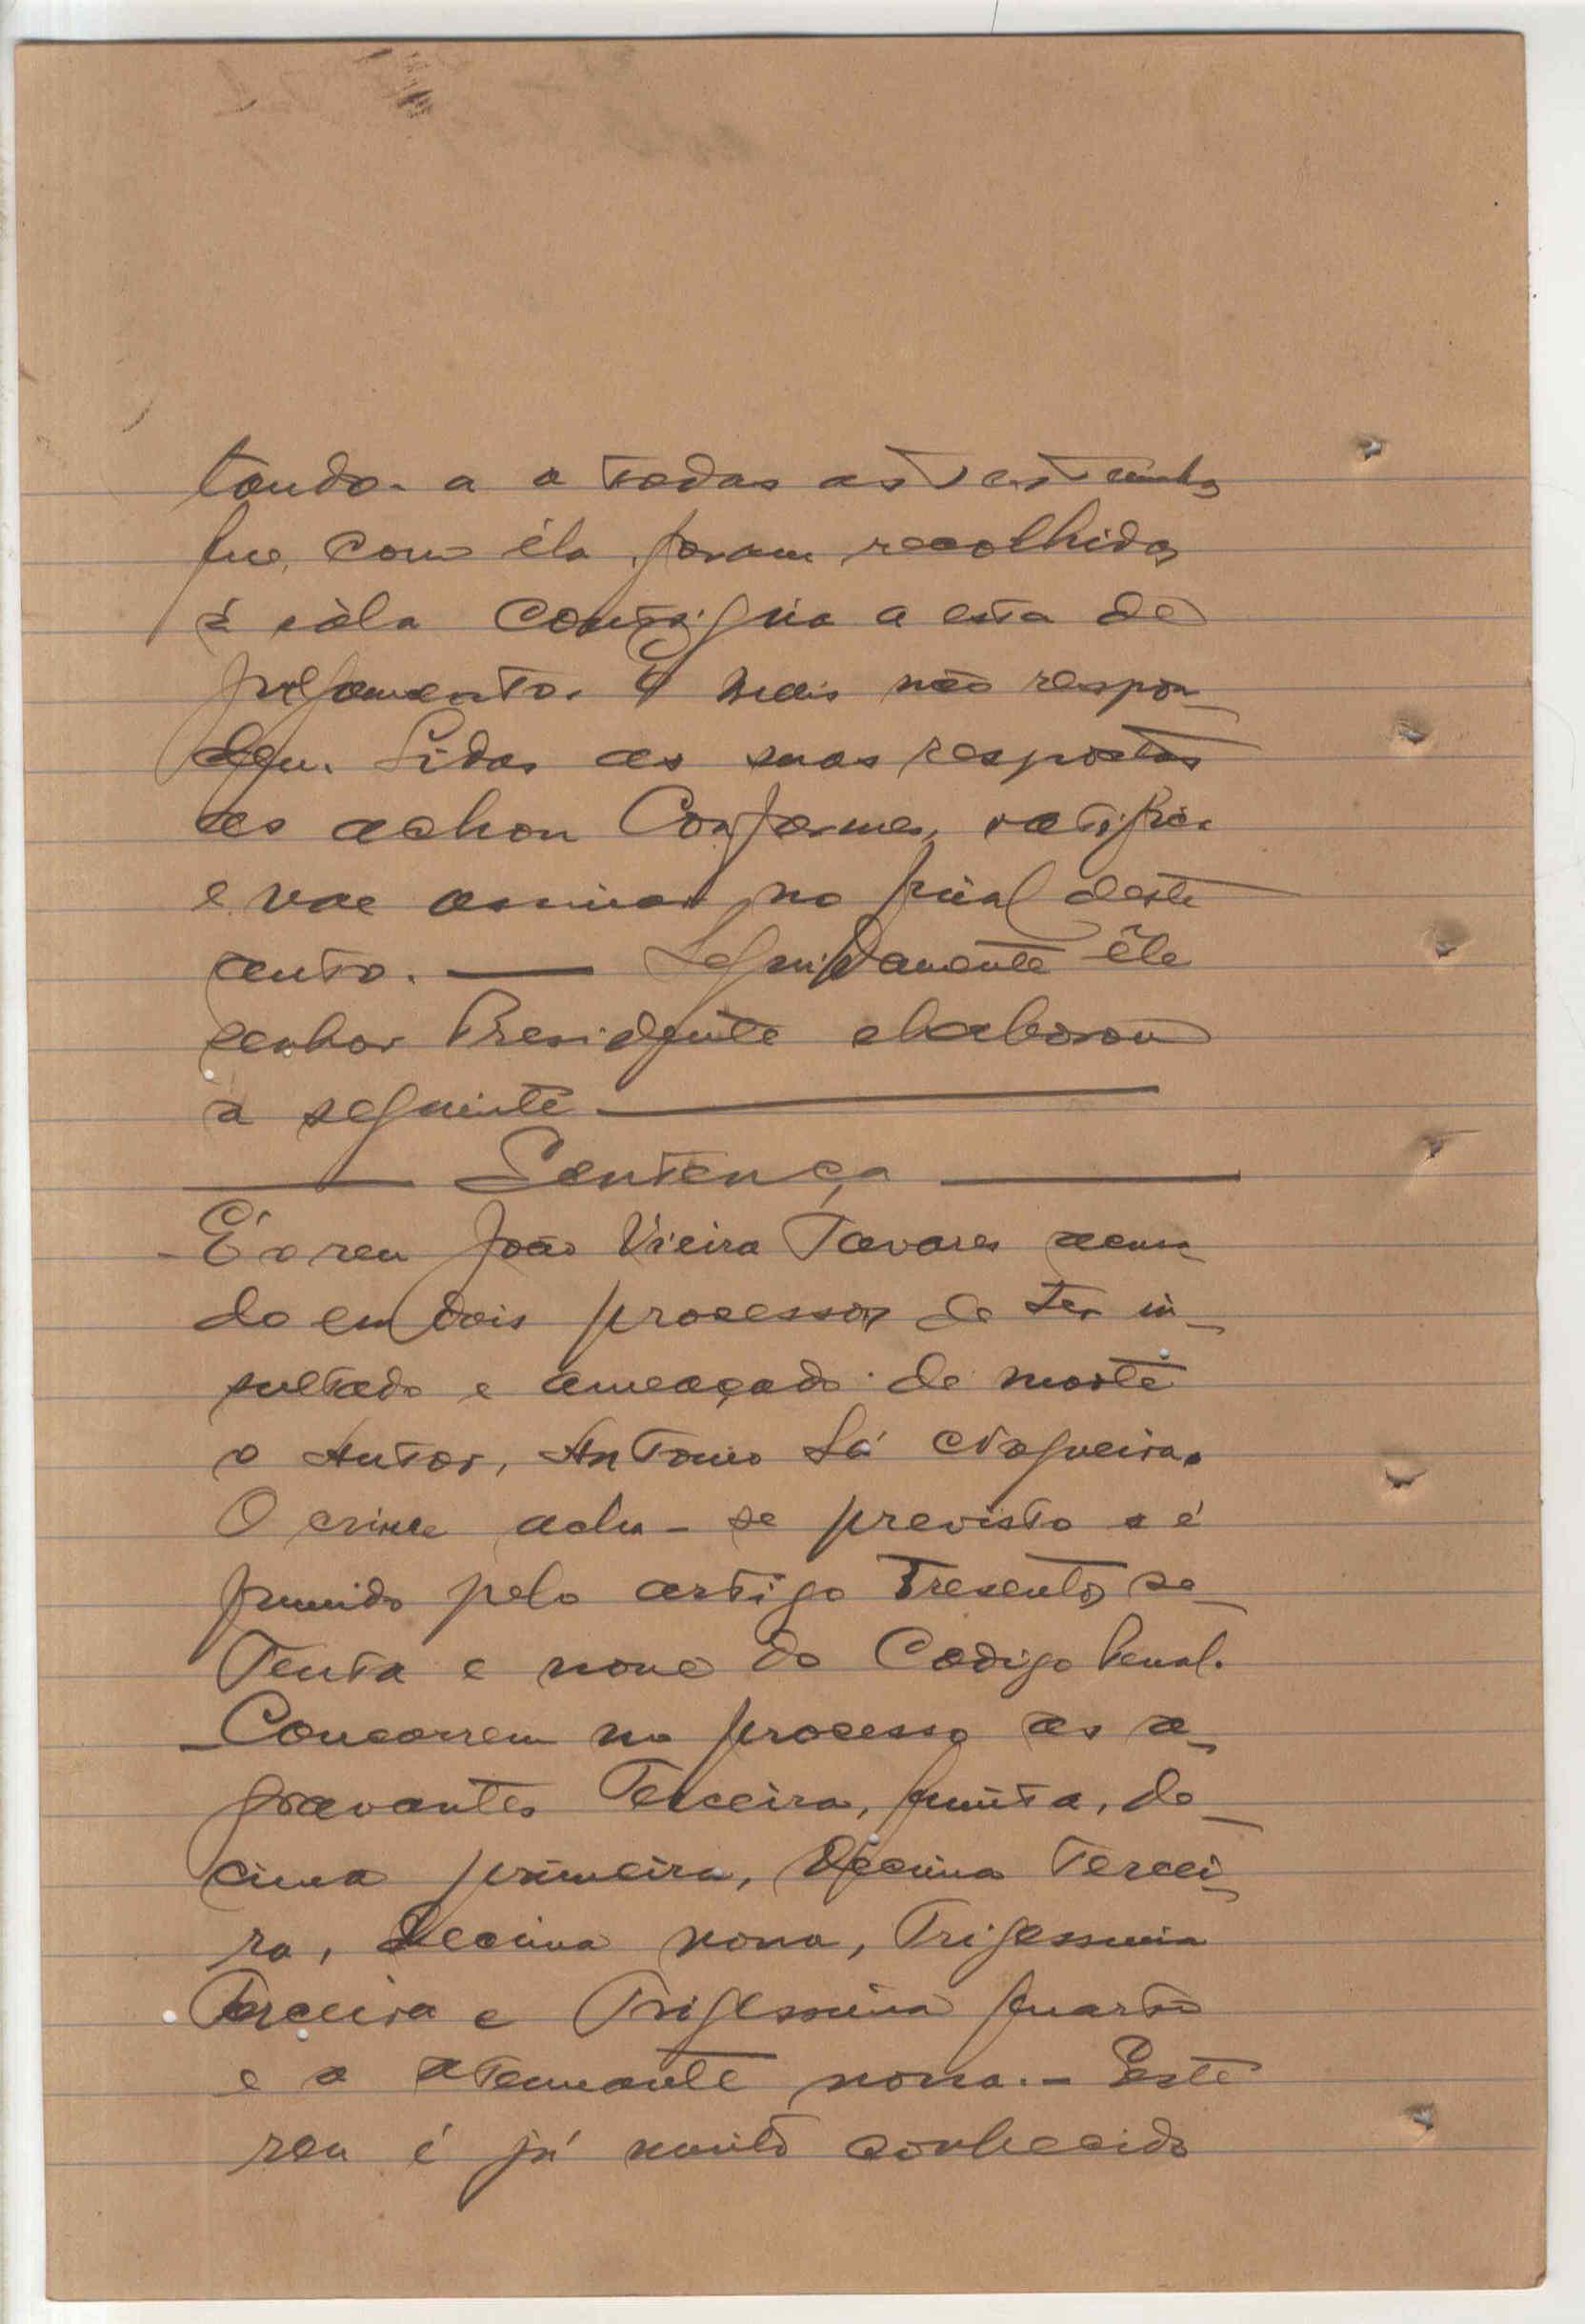 tando-a a todas as testemunhas
que com éla foram recolhidas
á sála contigua a esta de
julgamento. E mais não respon-
deu. Lidas as suas respostas
as achou conformes, ratifica
e vae assinar no final deste
auto. — Seguidamente êle
senhor Presidente elaborou
a seguinte —
— Sentença —
- É o reu João Vieira Tavares acusa-
do em dois processos de ter in-
sultado e ameaçado de morte
o Autor, Antonio Sá Nogueira.
O crime acha-se previsto e é
punido pelo artigo tresentos se-
tenta e nove do Codigo Penal.
- Concorrem no processo as a-
gravantes terceira, quinta, de-
cima primeira, decima tercei-
ra, decima nona, trigessima
terceira e trigessima quarta
e a atenuante nona. - Este
reu é já muito conhecido